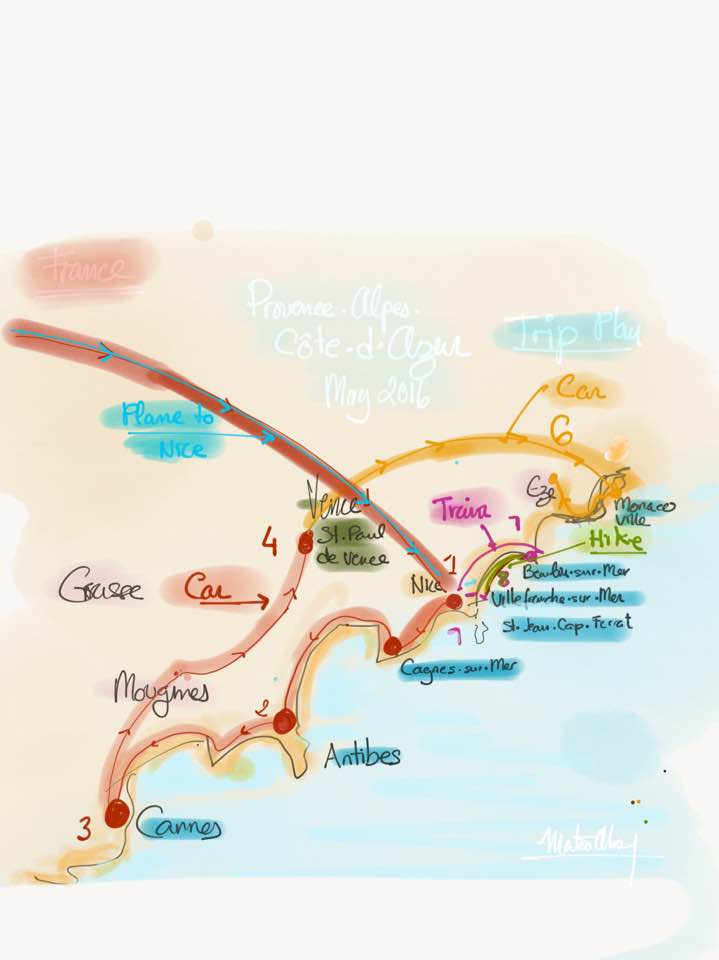 France
Provence-Alpes-
Côte-d'Azur
May 2016
Trip Plan
Plane to
Nice
Car
6
Vence
St. Paul
de Vence
4
Train
7
Eze
Monaco
Ville
Hike
1
Nice
8
Beaulieu-sur-Mer
Villefranche-sur-Mer
St. Jean-Cap-Ferrat
7
Grasse
Car
Cagnes-sur-Mer
Mougines
2
Antibes
3
Cannes